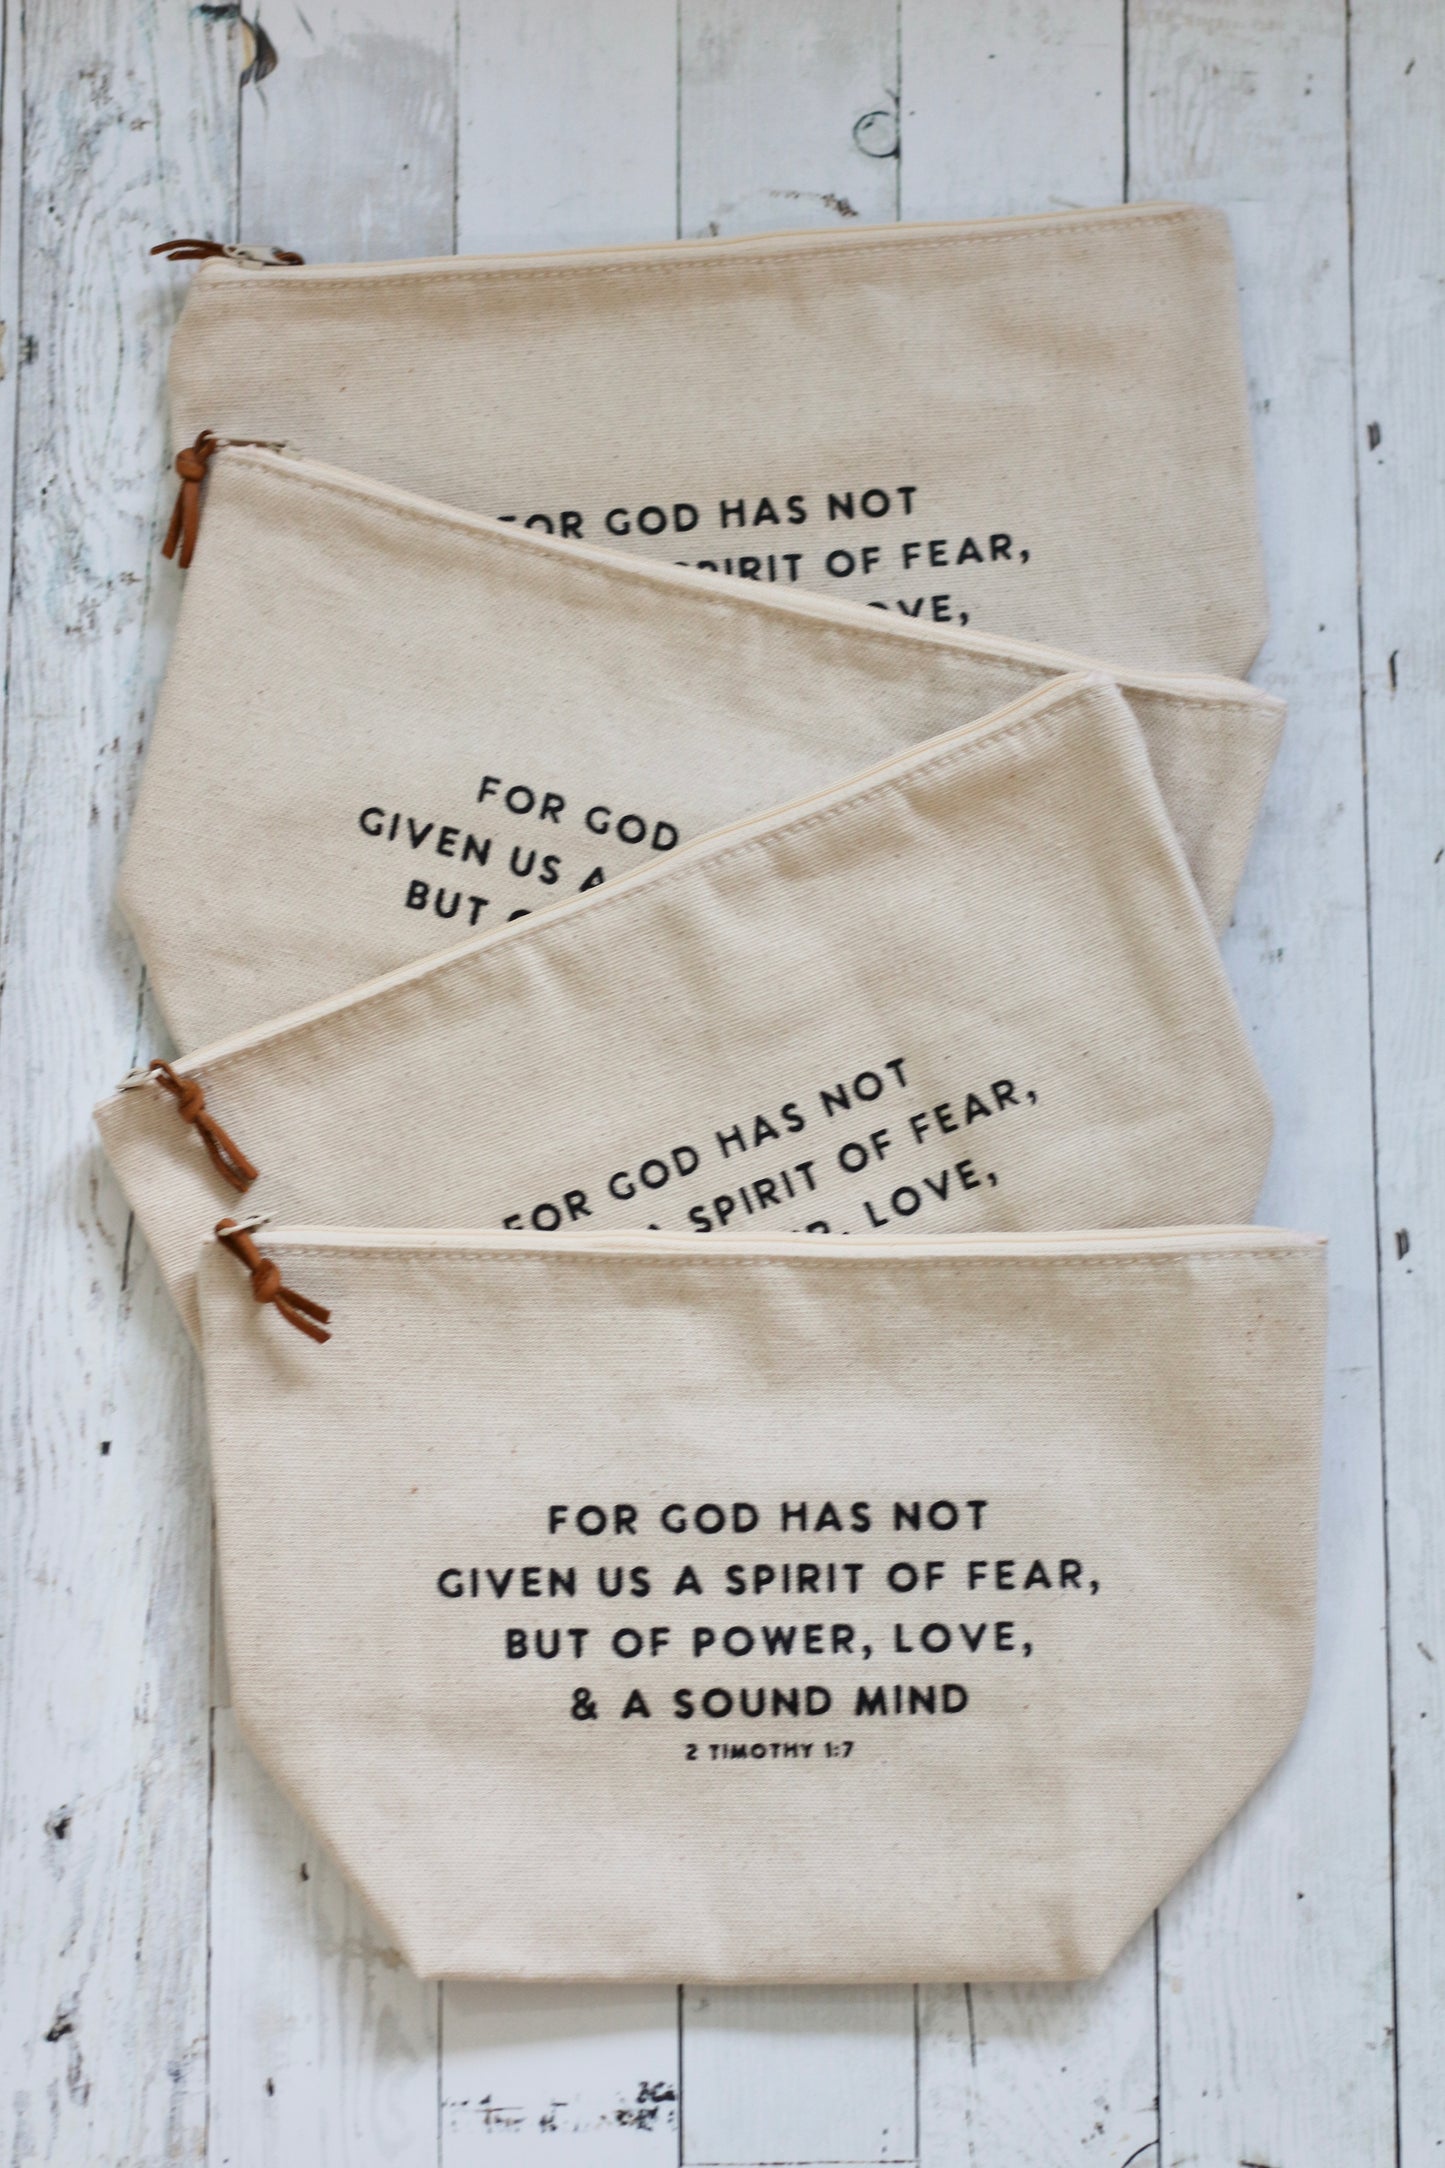 FOR GOD HAS NOT
SPIRIT OF FEAR,
LOVE,
FOR GOD
GIVEN US A
BUT
FOR GOD HAS NOT
A SPIRIT OF FEAR,
LOVE,
FOR GOD HAS NOT
GIVEN US A SPIRIT OF FEAR,
BUT OF POWER, LOVE,
& A SOUND MIND
2 TIMOTHY 1:7